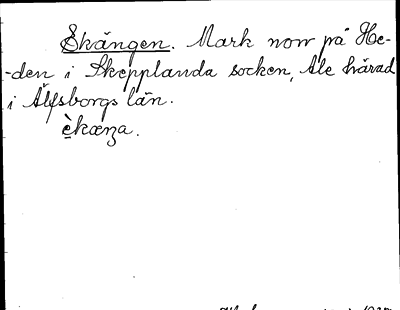 Ekängen. Mark norr på He-
-den i Skepplanda socken, Ale härad
i Älfsborgs län.
èkæŋa.